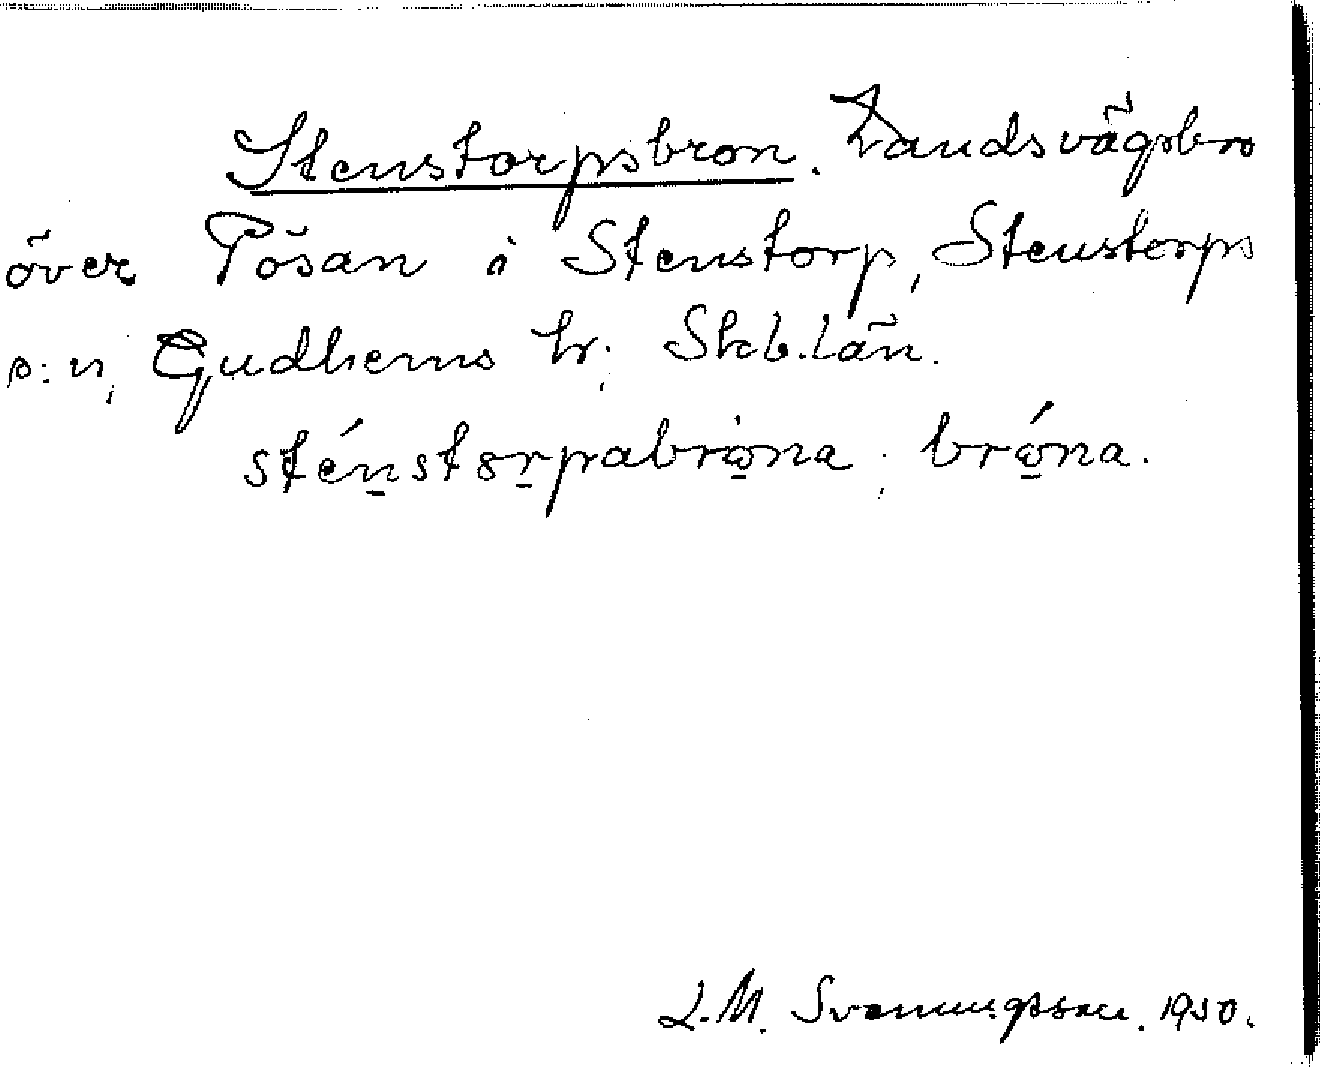 Stenstorpsbron. Landsvägsbro
över Pösan i Stenstorp, Stenstorps
s:n, Gudhems hr, Skb.län.
sténstørpabrǫ̀na, brǫ́na.
L.M. Svenungsson. 1930.